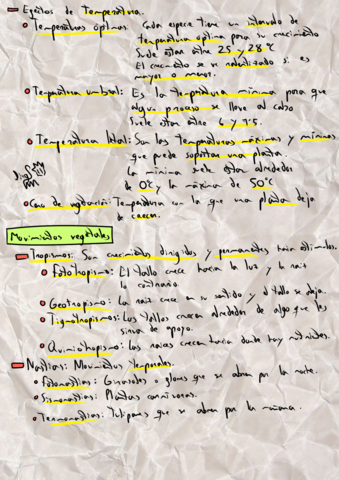 Efectos de Temperatura.
Temperatura óptima: Cada especie tiene un intervalo de
temperatura óptima para su crecimiento
Suele estar entre 25 y 28°C
El crecimiento se ve ralentizado si es
mayor o menor.
Temperatura umbral: Es la temperatura mínima para que
algun proceso se lleve al cabo
Suele estar entre 6 y 7.5.
Temperatura letal: Son las temperaturas máximas y mínimas
que puede soportar una planta.
La mínima suele estar alrededor
de 0°C y la máxima de 50°C
Cero de vegetación: Temperatura con la que una planta deja
de crecer.
Movimientos vegetales
Tropismos: Son crecimientos dirigidos y permanentes hacia estímulos.
Fototropismo: El tallo crece hacia la luz y la raíz
lo contrario.
Geotropismo: La raíz crece en su sentido y el tallo se aleja.
Tigmotropismo: Los tallos crecen alrededor de algo que les
sirva de apoyo.
Quimiotropismo: Las raíces crecen hacia donde hay nutrientes.
Nastias: Movimientos temporales.
Fotonastias: Girasoles o flores que se abren por la noche.
Sismonastias: Plantas carnívoras.
Termonastias: Tulipanes que se abren por la mañana.